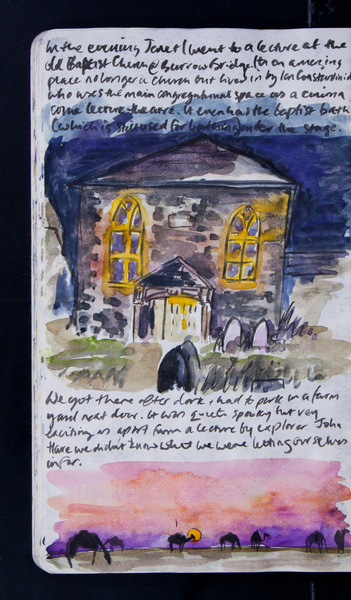 In the evening Janet & I went to a lecture at the
old Baptist Church @ Burrow Bridge. It's an amazing
place no longer a church but lived in by Ian Constantinides
who uses the main congregational space as a cinema
come lecture theatre. It even had the baptist bath
(which is still used for bathing) under the stage.
We got there after dark & had to park in a farm
yard next door. It was quite spooky but very
exciting as apart from a lecture by explorer John
Hare we didn't know what we were letting ourselves
in for.